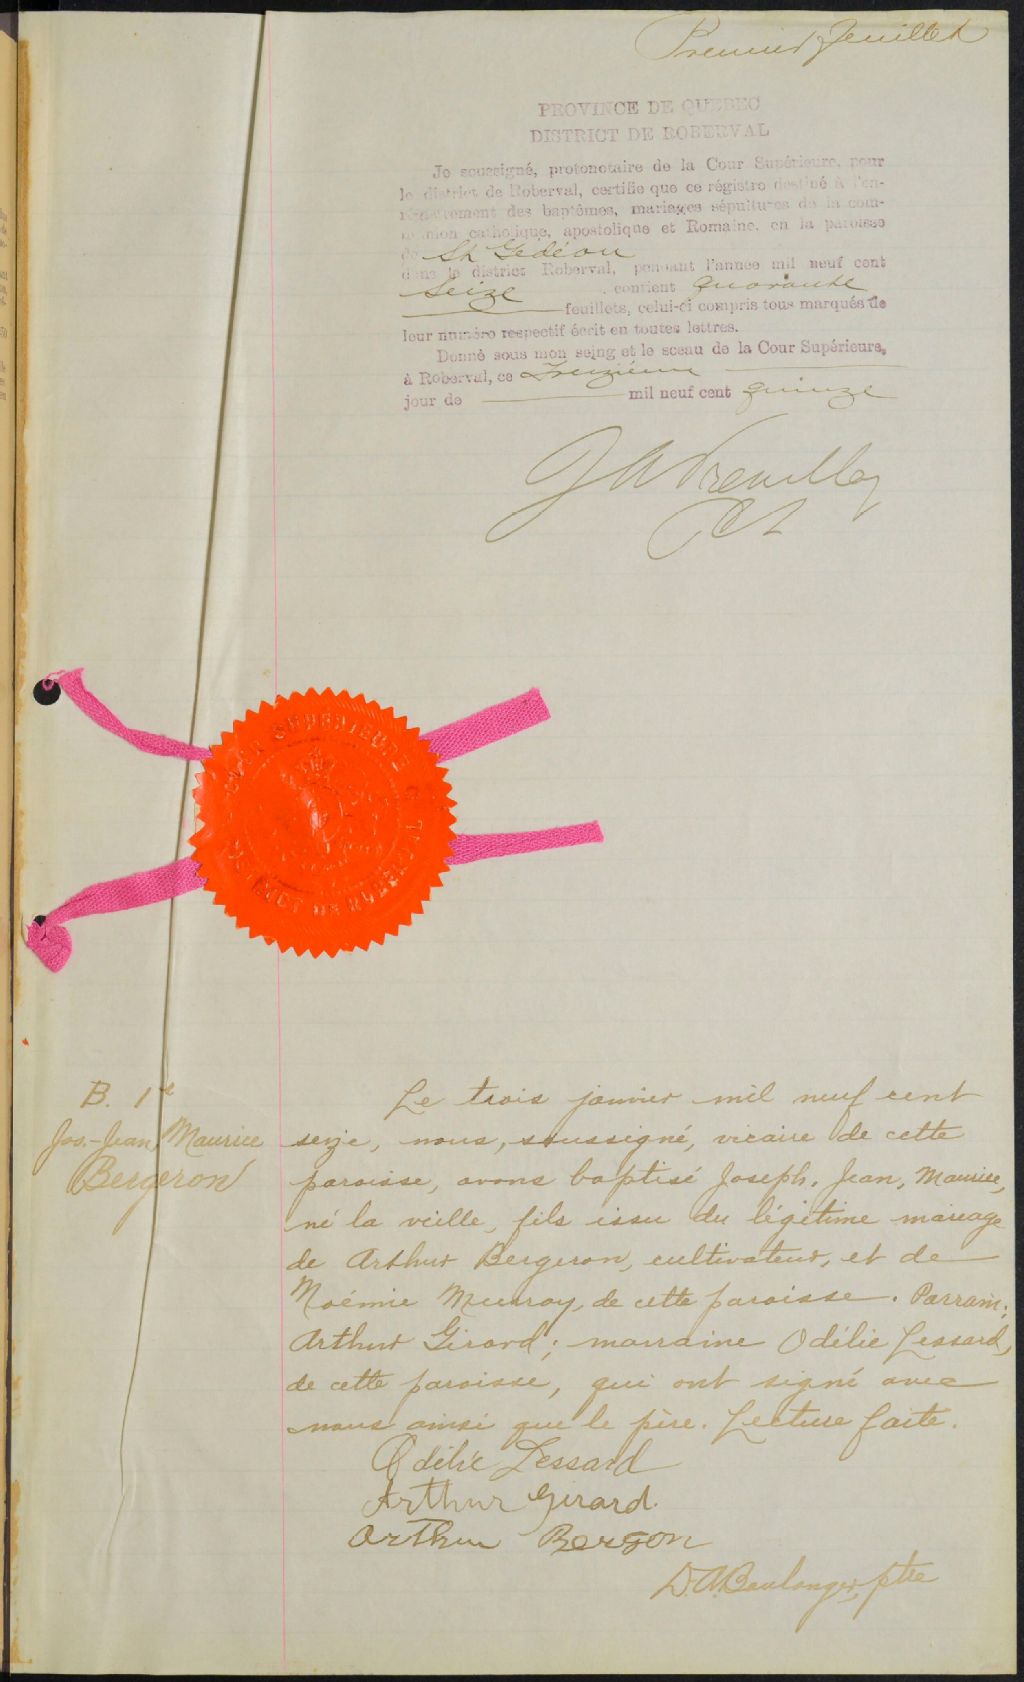 Premier feuillet
PROVINCE DE QUEBEC
DISTRICT DE ROBERVAL
Je soussigné, protonotaire de la Cour Supérieure, pour
le district de Roberval, certifie que ce régistre destiné à l'en-
régistrement des baptêmes, mariages sépultures de la com-
munion catholique, apostolique et Romaine, en la paroisse
de St Gédéon
dans le district Roberval, pendant l'année mil neuf cent
seize contient quarante
feuillets, celui-ci compris tous marqués de
leur numéro respectif écrit en toutes lettres.
Donné sous mon seing et le sceau de la Cour Supérieure,
à Roberval, ce
jour de mil neuf cent quinze
COUR SUPERIEURE
DISTRICT DE ROBERVAL
B. 1e
Jos.-Jean Maurice
Bergeron
Le trois janvier mil neuf cent
seize, nous, soussigné, vicaire de cette
paroisse, avons baptisé Joseph, Jean, Maurice,
né la veille, fils issu du légitime mariage
de Arthur Bergeron, cultivateur, et de
Noémie Murray, de cette paroisse. Parrain:
Arthur Girard; marraine Odélie Lessard,
de cette paroisse, qui ont signé avec
nous ainsi que le père. Lecture faite.
Odélie Lessard
Arthur Girard.
Arthur Bergon
D.A. Boulanger, ptre